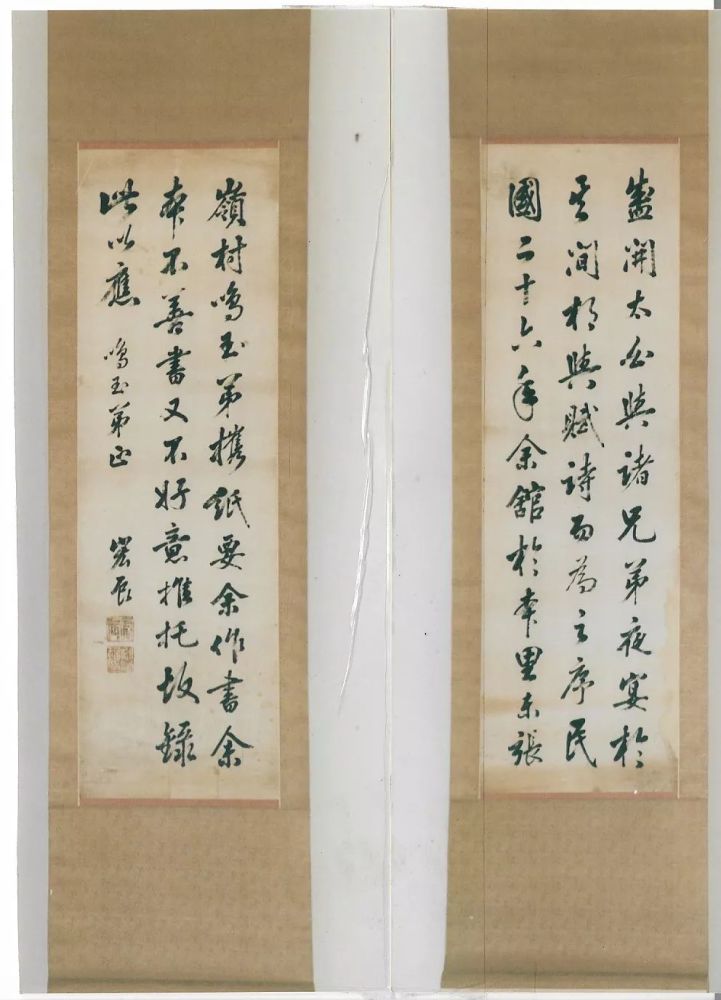 盛開太白與諸兄弟夜宴於
其間相與賦詩而為之序民
國二十六年余館於本里東張
嶺村鳴玉弟攜紙要余作書余
本不善書又不好意推托故錄
此以應
鳴玉弟正
辰